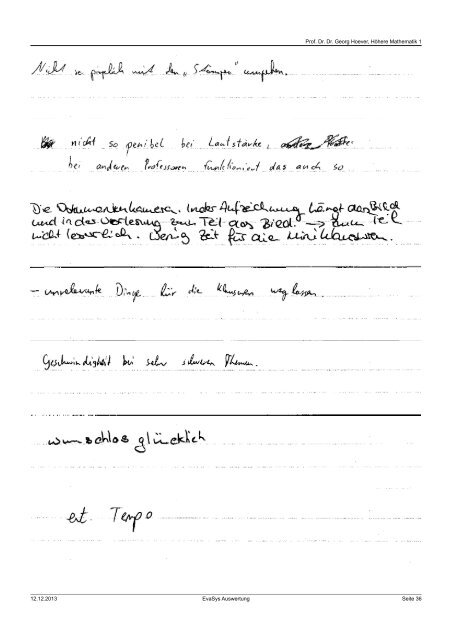 Prof. Dr. Dr. Georg Hoever, Höhere Mathematik 1
Nicht so mit den „Stempeln" umgehen.
nicht so penibel bei Lautstärke,
bei anderen Professoren funktioniert das auch so
Die Dokumentenkamera. In der Aufzeichnung hängt das Bild
und in der Vorlesung zum Teil das Bild. → zum Teil
nicht leserlich. Wenig Zeit für die Miniklausuren.
- unrelevante Dinge für die Klausuren weg lassen.
Geschwindigkeit bei sehr schweren Themen.
wunschlos glücklich
evt. Tempo
12.12.2013 EvaSys Auswertung Seite 36